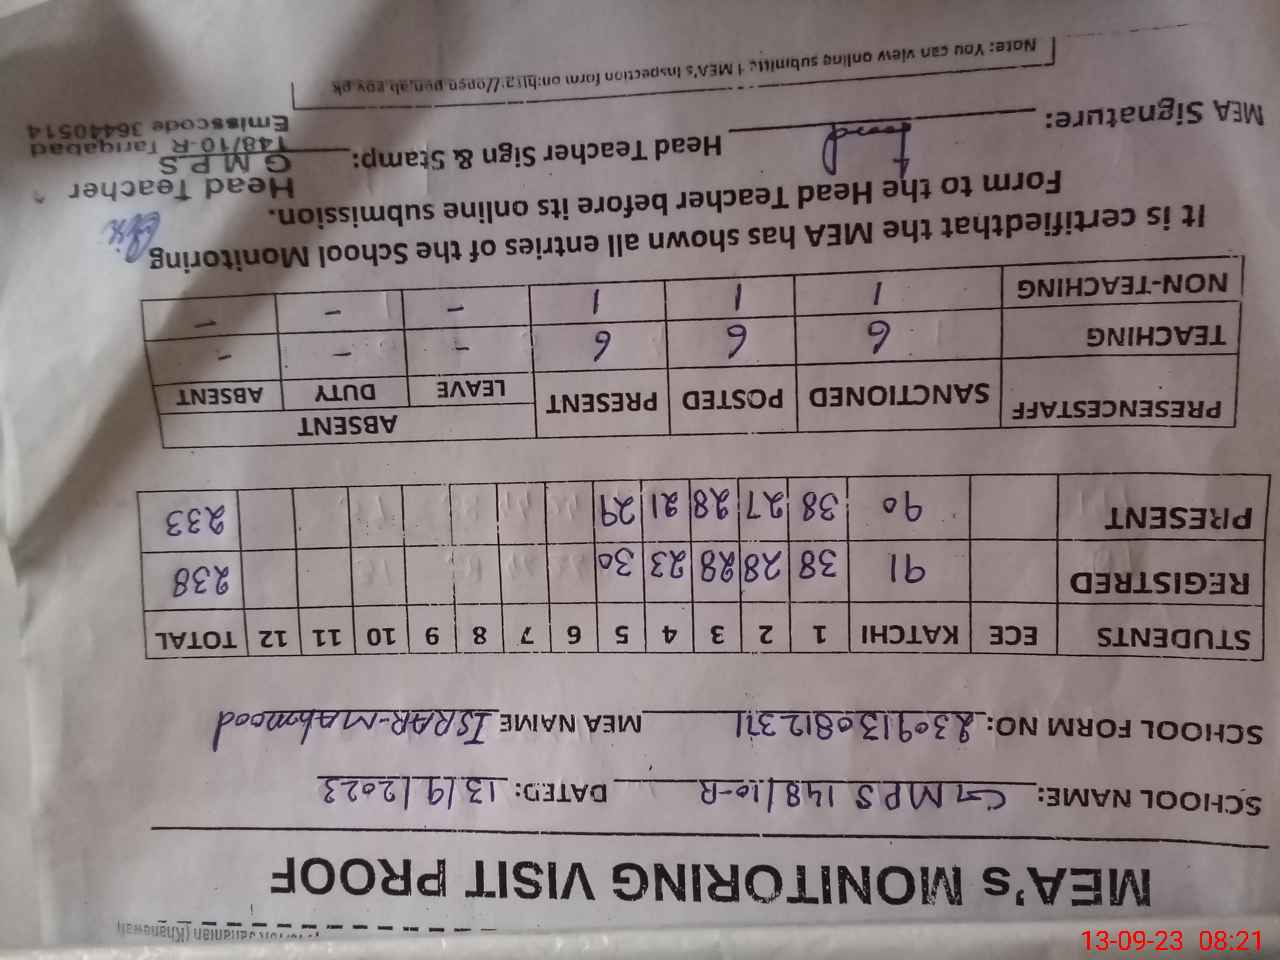 Jahanian (Khanewal)
MEA's MONITORING VISIT PROOF
SCHOOL NAME: GMPS 148/10-R DATED: 13/9/2023
SCHOOL FORM NO: 230913081237 MEA NAME ISRAR-MAhmood
STUDENTS ECE KATCHI 1 2 3 4 5 6 7 8 9 10 11 12 TOTAL
REGISTRED 91 38 28 28 23 30 238
PRESENT 90 38 27 28 21 29 233
PRESENCESTAFF SANCTIONED POSTED PRESENT ABSENT
LEAVE DUTY ABSENT
TEACHING 6 6 6 - - -
NON-TEACHING 1 1 1 - - -
It is certifiedthat the MEA has shown all entries of the School Monitoring
Form to the Head Teacher before its online submission.
MEA Signature: Head Teacher Sign & Stamp:
Head Teacher
G M P S
148/10-R Tariqabad
Emisscode 36440514
Note: You can view online submitted MEA's Inspection form on:http://open.punjab.gov.pk
13-09-23 08:21